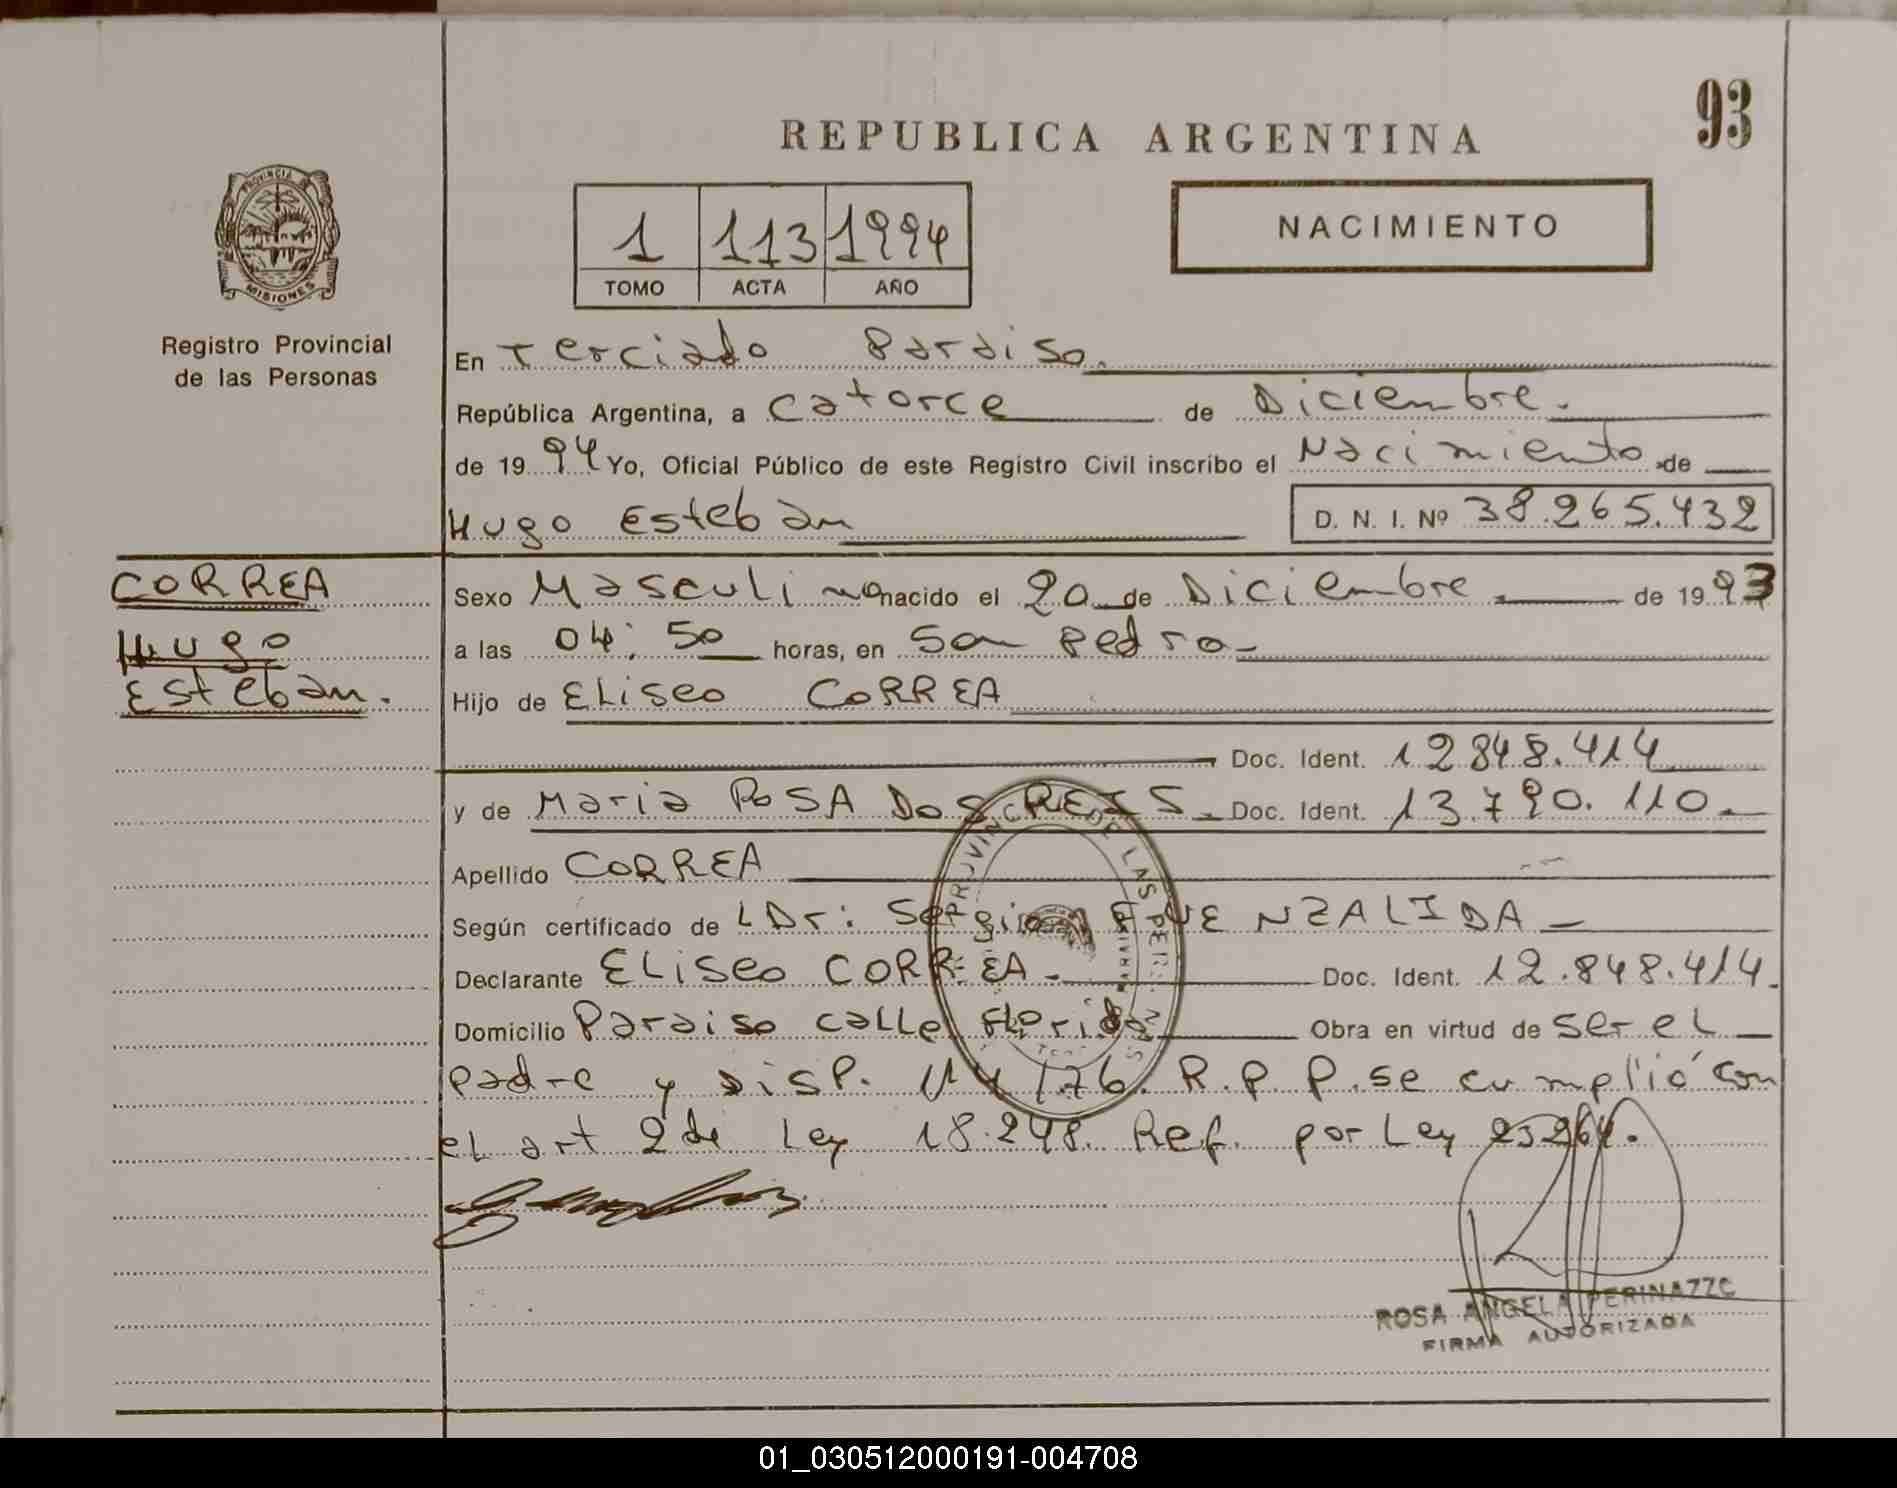 93
REPUBLICA ARGENTINA
PROVINCIA DE
MISIONES
Registro Provincial
de las Personas
1 113 1994
TOMO ACTA AÑO
NACIMIENTO
En Terciado Paraiso.
República Argentina, a catorce de Diciembre.
de 1994 Yo, Oficial Público de este Registro Civil inscribo el Nacimiento de
Hugo Esteban D. N. I. Nº 38.265.432
CORREA
Hugo
Esteban.
Sexo Masculino nacido el 20 de Diciembre de 1993
a las 04:50 horas, en San Pedro
Hijo de Eliseo CORREA
Doc. Ident. 12848.414
y de Maria ROSA DOS REIS. Doc. Ident. 13.790.110
Apellido CORREA
Según certificado de LDr: Sergio FUENZALIDA
Declarante Eliseo CORREA Doc. Ident. 12.848.414.
Domicilio Paraiso calle Florida Obra en virtud de ser el
padre y Disp. 114/76. R.P.P. se cumplió con
el art 2 de Ley 18.248. Ref. por Ley 23264.
ROSA ANGELA PERINAZZO
FIRMA AUTORIZADA
01_030512000191-004708